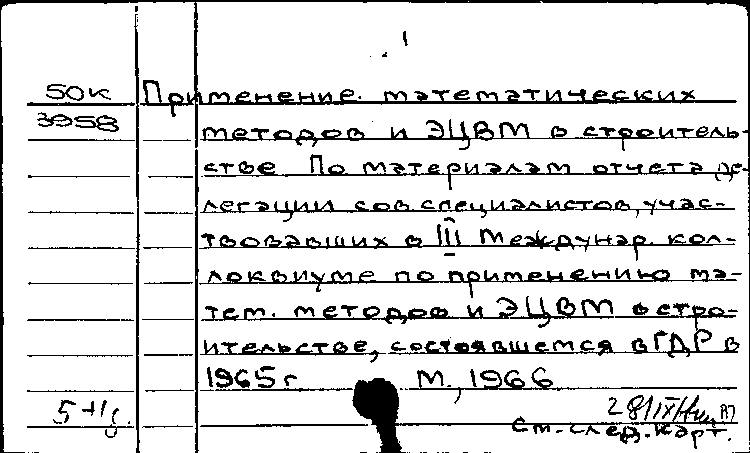 50к Применение математических
3958 методов и ЭЦВМ в строитель-
стве По материалам отчета де-
легации сов специалистов, учас-
твовавших в III Междунар. кол-
локвиуме по применению ма-
тем. методов и ЭЦВМ в стро-
ительстве, состоявшемся в ГДР в
1965 г М., 1966
28/IX
Ст. след. карт.